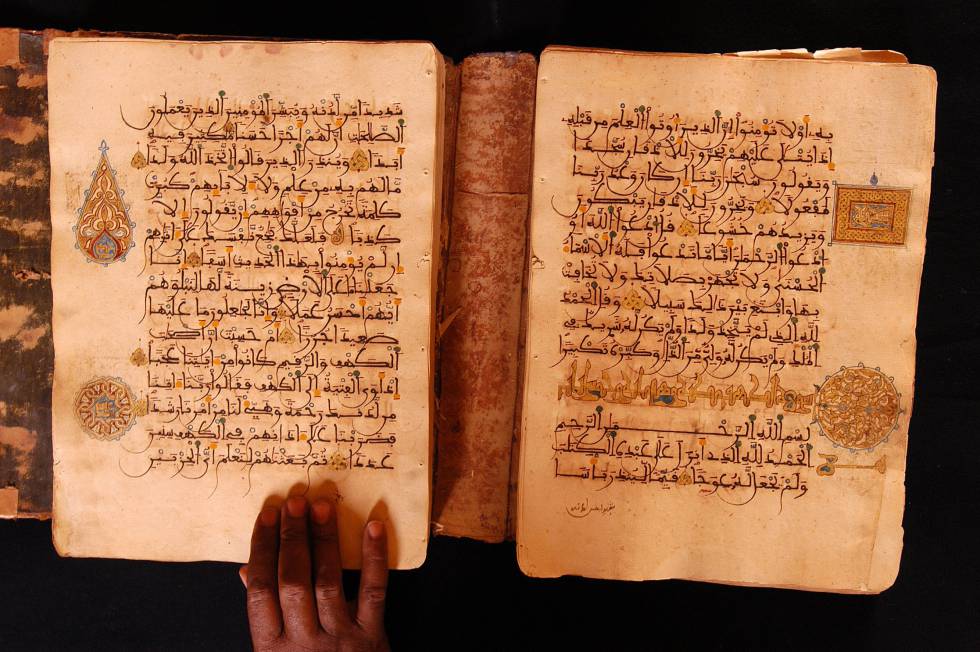 به أو لا تومنوا إن الذين أوتوا العلم من قبله
إذا يتلى عليهم يخرون للأذقان سجدا
ويقولون سبحن ربنا إن كان وعد ربنا
لمفعولا ويخرون للأذقان يبكون
ويزيدهم خشوعا قل ادعوا الله أو
ادعوا الرحمن أيا ما تدعوا فله الأسماء
الحسنى ولا تجهر بصلاتك ولا تخافت
بها وابتغ بين ذلك سبيلا وقل الحمد
لله الذي لم يتخذ ولدا ولم يكن له شريك في
الملك ولم يكن له ولي من الذل وكبره تكبيرا
بسم الله الرحمن الرحيم
الحمد لله الذي أنزل على عبده الكتب
ولم يجعل له عوجا قيما لينذر بأسا
شديدا من لدنه ويبشر المومنين الذين يعملون
الصلحت أن لهم أجرا حسنا مكثين فيه
أبدا وينذر الذين قالوا اتخذ الله ولدا
ما لهم به من علم ولا لأبايهم كبرت
كلمة تخرج من أفوههم إن يقولون إلا
كذبا فلعلك بخع نفسك على أثرهم
إن لم يومنوا بهذا الحديث أسفا إنا
جعلنا ما على الأرض زينة لها لنبلوهم
أيهم أحسن عملا وإنا لجعلون ما عليها
صعيدا جرزا أم حسبت أن أصحب
الكهف والرقيم كانوا من ءايتنا عجبا
إذ أوى الفتية إلى الكهف فقالوا ربنا ءاتنا
من لدنك رحمة وهيئ لنا من أمرنا رشدا
فضربنا على ءاذانهم في الكهف سنين
عددا ثم بعثنهم لنعلم أي الحزبين